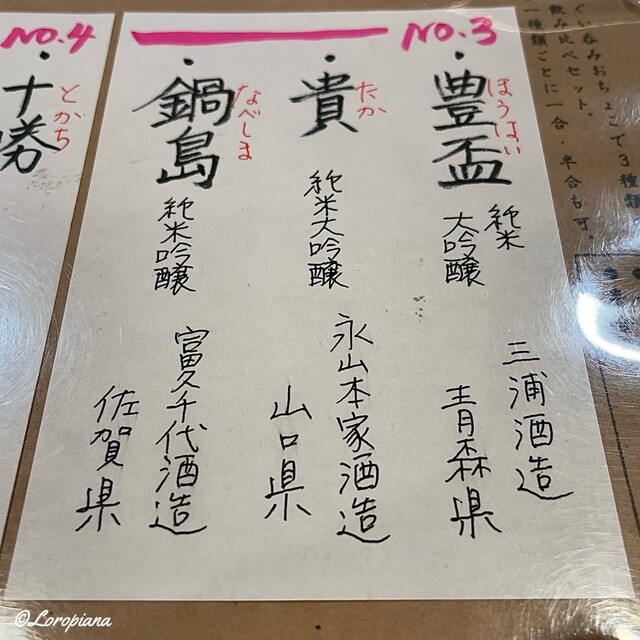 ぐい呑みおちょこで3種類
飲み比べセット。
一種類ごとに一合・半合も可。
NO.3
・豊盃
ほうはい
純米
大吟醸
三浦酒造
青森県
・貴
たか
純米大吟醸
永山本家酒造
山口県
・鍋島
なべしま
純米吟醸
富久千代酒造
佐賀県
NO.4
・十勝
とかち
©Loropiana